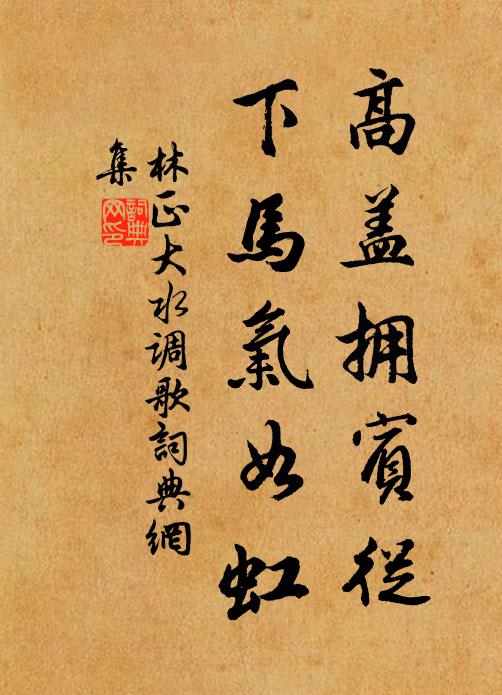 高盖拥賓從
下馬氣如虹
林正大水调歌詞典網
集
詞典
网印